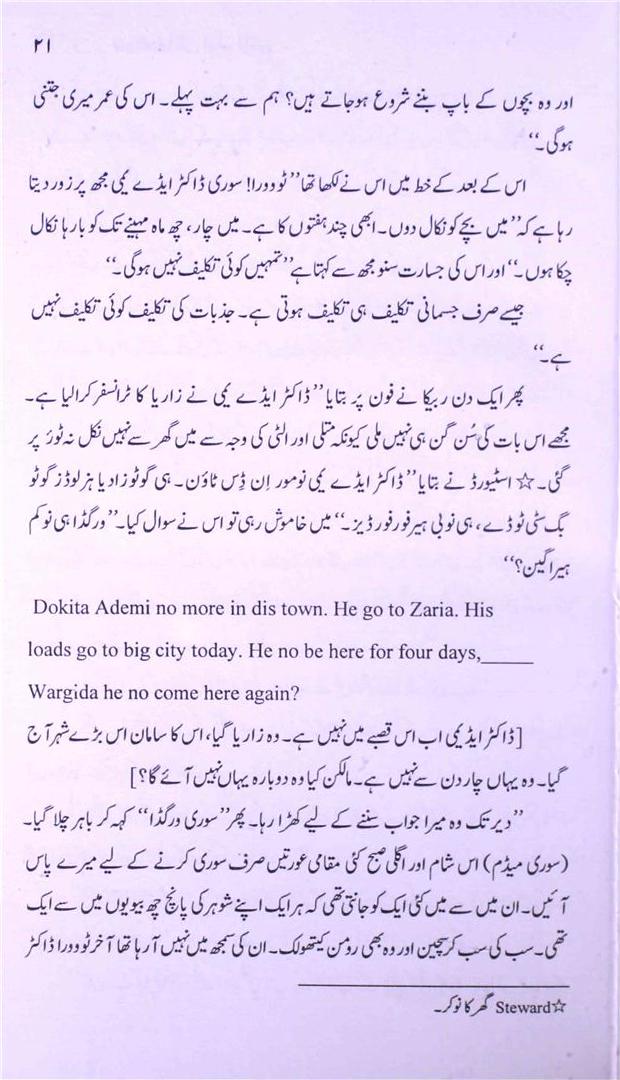 ۲۱
اور وہ بچوں کے باپ بننے شروع ہوجاتے ہیں؟ ہم سے بہت پہلے۔ اس کی عمر میری جتنی
ہوگی۔“
اس کے بعد کے خط میں اس نے لکھا تھا ”ٹووورا! سوری ڈاکٹر ایڈے یمی مجھ پر زور دیتا
رہا ہے کہ ”میں بچے کو نکال دوں۔ ابھی چند ہفتوں کا ہے۔ میں چار، چھ ماہ مہینے تک کو بارہا نکال
چکا ہوں۔“ اور اس کی جسارت سنو مجھ سے کہتا ہے ”تمہیں کوئی تکلیف نہیں ہوگی۔“
جیسے صرف جسمانی تکلیف ہی تکلیف ہوتی ہے۔ جذبات کی تکلیف کوئی تکلیف نہیں
ہے۔“
پھر ایک دن ربیکا نے فون پر بتایا ”ڈاکٹر ایڈے یمی نے زاریا کا ٹرانسفر کرالیا ہے۔
مجھے اس بات کی سُن گن ہی نہیں ملی کیونکہ متلی اور الٹی کی وجہ سے میں گھر سے نہیں نکل نہ ٹوَر پر
گئی۔ ☆ اسٹیورڈ نے بتایا ”ڈاکٹر ایڈے یمی نومور اِن دِس ٹاؤن۔ ہی گوٹو زادیا ہزلوڈز گوٹو
بگ سٹی ٹوڈے، ہی نوبی ہیر فور فور ڈیز۔“ میں خاموش رہی تو اس نے سوال کیا۔ ”ورگڈا ہی نوکم
ہیرا گین؟“
Dokita Ademi no more in dis town. He go to Zaria. His
loads go to big city today. He no be here for four days,_____
Wargida he no come here again?
[ڈاکٹر ایڈیمی اب اس قصبے میں نہیں ہے۔ وہ زاریا گیا، اس کا سامان اس بڑے شہر آج
گیا۔ وہ یہاں چار دن سے نہیں ہے۔ مالکن کیا وہ دوبارہ یہاں نہیں آئے گا؟]
”دیر تک وہ میرا جواب سننے کے لیے کھڑا رہا۔ پھر ”سوری ورگڈا“ کہہ کر باہر چلا گیا۔
(سوری میڈم) اس شام اور اگلی صبح کئی مقامی عورتیں صرف سوری کرنے کے لیے میرے پاس
آئیں۔ ان میں سے میں کئی ایک کو جانتی تھی کہ ہر ایک اپنے شوہر کی پانچ چھ بیویوں میں سے ایک
تھی۔ سب کی سب کرسچین اور وہ بھی رومن کیتھولک۔ ان کی سمجھ میں نہیں آرہا تھا آخر ٹووورا ڈاکٹر
☆Steward گھر کا نوکر۔